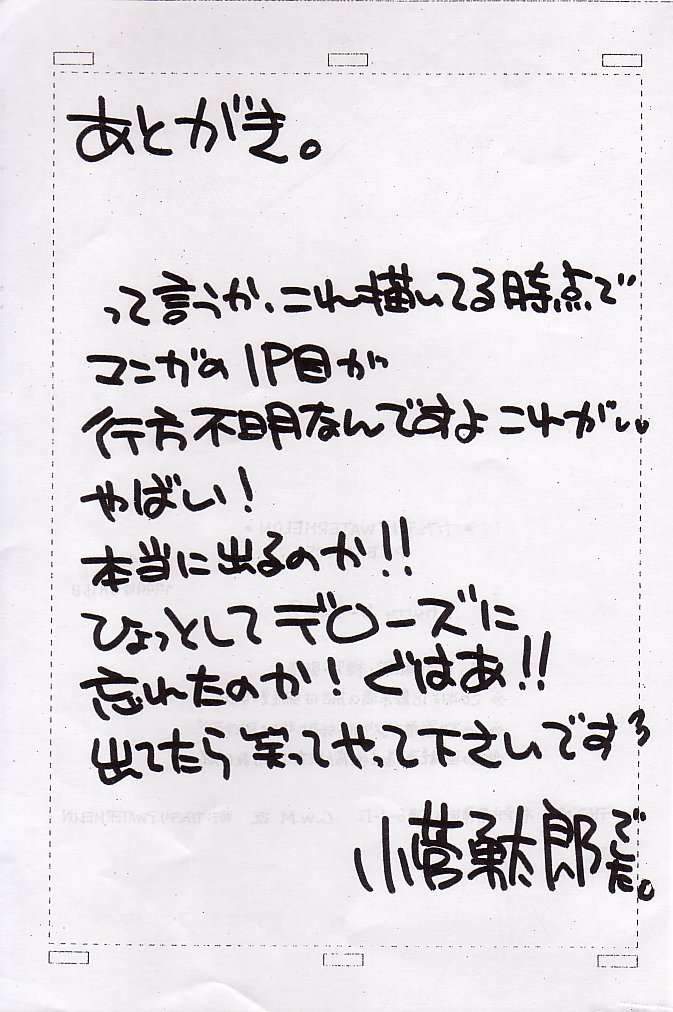 あとがき。
って言うか、これ描いてる時点で
マンガの1P目が
行方不明なんですよこれがい。
やばい!
本当に出るのか!!
ひょっとしてデ〇ーズに
忘れたのか!ぐはあ!!
出てたら笑てやって下さいですぅ
小菅勇太郎でした。